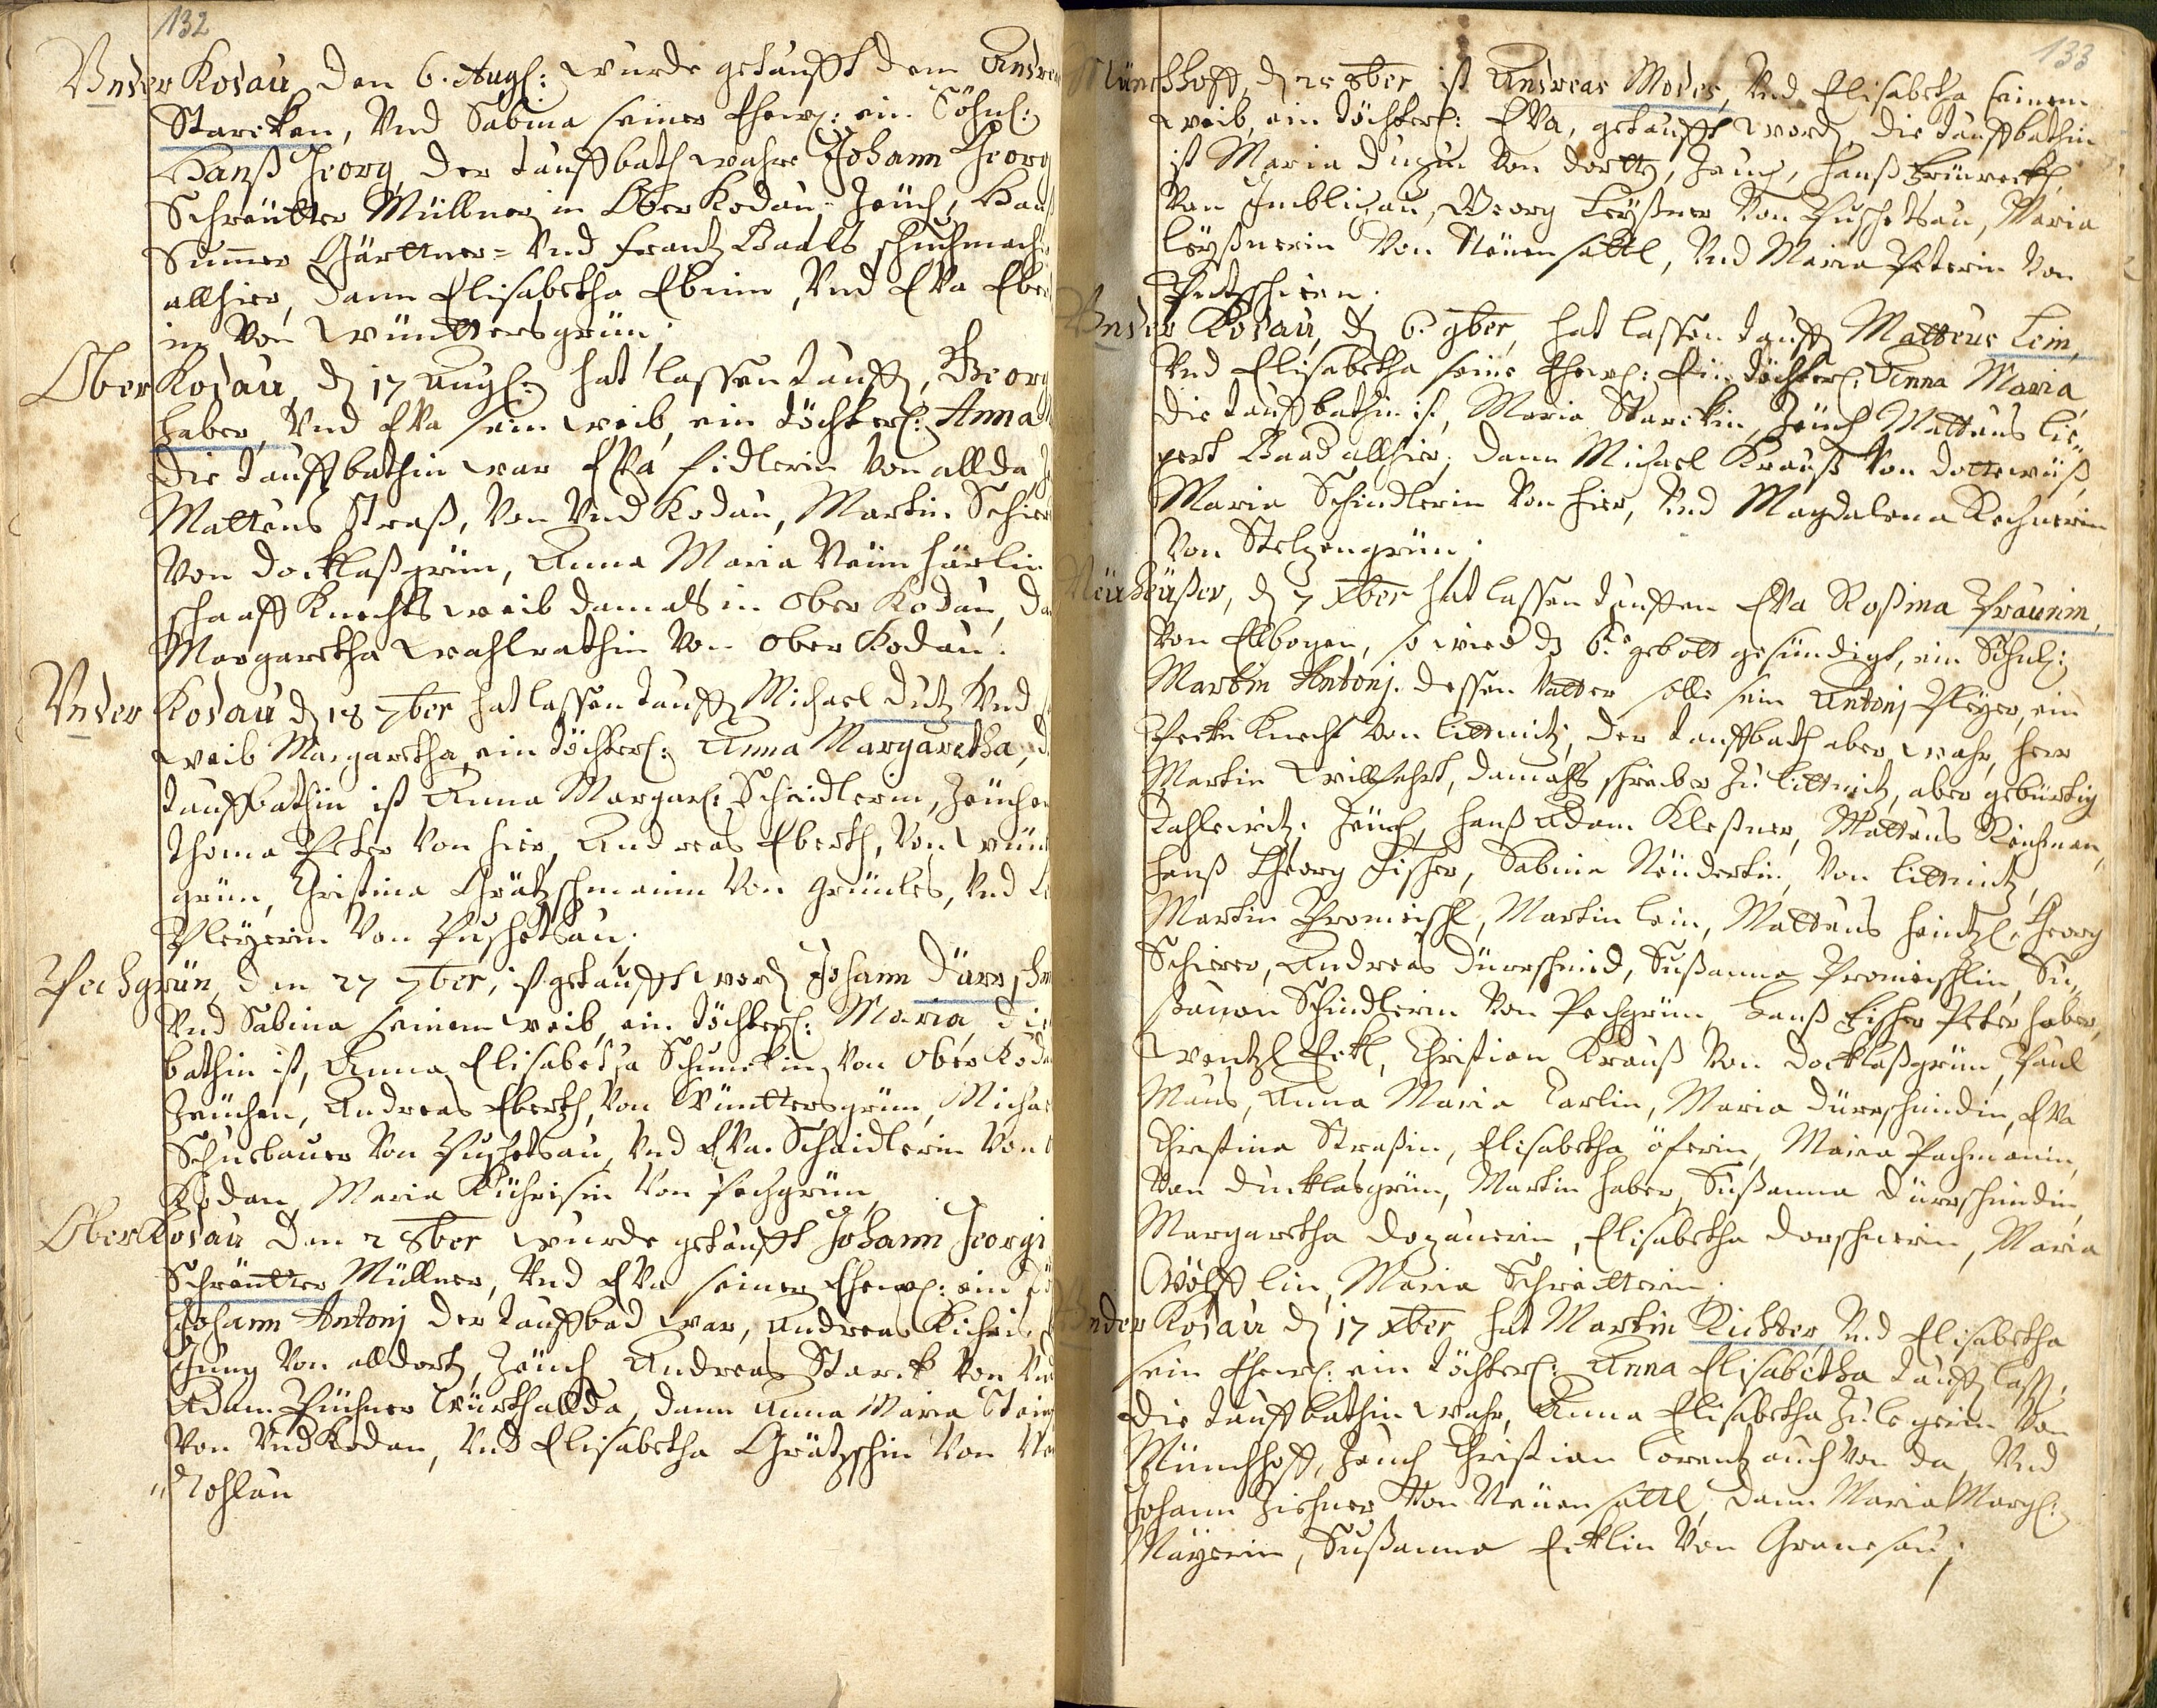 132
Vnder Kodau den 6. Augl: wurde getaufft dem Andre
Starcken, Vnd Sabina seiner Ehew: ein Söhnl:
Hanß Georg, der tauffbath wahre Johann Georg
Schreütter Müllner in Ober Kodau, Zeüch, Hanß
Sumer Gärttner= Vnd Frantz Baals schuchmach
allhier, dann Elisabetha Ebnin, Vnd EVa Eber
in Von Wünttersgrün;
Ober Kodau d 17 Augl: hat lassen tauff, Georg
Haber, Vnd EVa sein weib, ein töchterl: Anna
die tauffbathin war EVa fidlerin Von allda,
Matteus Straß, Von Vnd Kodau, Martin Schier
Von docklaßgrün, Anna Maria Neün härlin
schaaff Knechts weib damals in Ober Kodau, da
Margaretha wahlrathin Von Ober Kodau.
Vnder Kodau d 18 7ber hat lassen tauff Michael dutz Vnd
weib Margaretha, ein töchterl: Anna Margaretha, d
tauffbathin ist Anna Margarl: Schindlerin, Zeüchen
thoma Peter Von hier, Andreas Eberth, Von wün
grün, Christina Grätzschmanin Von Grünles, Vnd
Pleyerin Von Puschetsau;
Pechgrün, den 27 7ber, ist getaufft word Johann Dürrschm
Vnd Sabina seinem weib, ein töchterl: Maria, die
bathin ist, Anna Elisabetha Schunckin, Von Ober Koda
Zeüchen, Andreas Eberth, Von Wünttersgrün, Michae
Schusbauer Von Puschetsau, Vnd EVa Schindlerin Von
Kodau, Maria Kührisin Von Pechgrün,
Ober Kodau den 2 8ber wurde getaufft Johann Georgi
Schreütter Müllner, Vnd EVa seiner Ehew: ein
Johann Antonj der tauffbad war, Andreas
Jung Von alldort, Zeüch Andreas Starck Von Vnd
Adam Püchner Würth allda, dann Anna Maria
Von Vnd Kodau, Vnd Elisabetha Grätzschin Von
Rohlau
133
Münchhoff, d 25 8ber ist Andreas Moder, Vnd Elisabetha seinem
weib, ein töchterl: EVa, getaufft word, die tauffbathin
ist Maria Von dortt, Zeuch, Hanß
Von Imbligau, Georg Leyßner Von Puschetsau, Maria
Leyßnerin Von Neüen sattl, Vnd Maria Peterin Von
Putschirn;
Vnder Kodau, d 6. 9ber, hat lassen tauff Matteus Lein,
Vnd Elisabetha seine Ehew: Ein töchterl: Anna Maria
die tauffbathin ist, Maria Starckin, Zeüch Matteus Lie
pert Baad allhier; dann Michael Krauß Von dottewiß,
Maria Schindlerin Von hier, Vnd Magdalena Kechnerin
Von Stelzengrün;
Neühäußer, d 7 Xber hat lassen tauffen EVa Roßina Praunin,
Von Ellbogen, so wied ds 6te gebott gesündigt, ein Söhnl:
Martin Antonj. dessen Vatter solle sein Antonj Pleyer, ein
Knecht Von Littmitz, der tauffbath aber wahr, Herr
Martin Willfahrt, damahls schreiber zu Littmitz, aber gebürtig
Zeüch, Hanß Adam Kleßner, Matteus Reichman,
Hanß Georg Fischer, Sabina Von Littmitz,
Martin Promeischl, Martin Lein, Matteus Heintzl, Georg
Schierer, Andreas Dürrschmid, Sußanna Promeischlin, Su,,
ßanna Schindlerin Von Pechgrün, Hanß Fischer Peter Haber,
Wentzl Eckl, Christian Krauß Von docklaßgrün, Paul
Maus, Anna Maria Carlin, Maria Dürrschmidin, EVa
Christina Straßin, Elisabetha öserin, Maria Pachmanin,
Von ducklasgrün, Martin Haber, Sußanna Dürrschmidin,
Margaretha Donauerin, Elisabetha Dorschnerin, Maria
Wölfflin, Maria Schreitterin;
Vnder Kodau d 17 Xber hat Martin Richter, Vnd Elisabetha
sein Ehew: ein töchterl: Anna Elisabetha tauff lass,
die tauffbathin wahr, Anna Elisabetha Zulegerin Von
Münchhoff, Zeuch Christian Lorentz auch Von da, Vnd
Johann Zischner Von Neüen sattl, dann Maria Margl:
Mäyerin, Sußanna Ecklin Von Granesau;